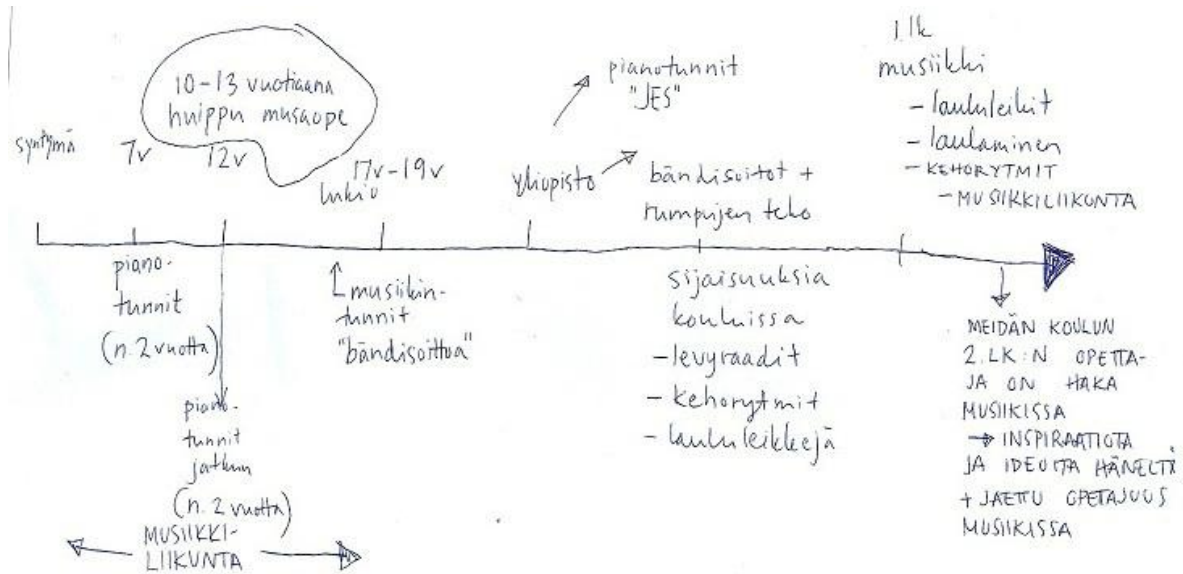 10-13 vuotiaana
huippu musaope
syntymä
7v
12v
17v-19v
lukio
yliopisto
pianotunnit
"JES"
bändisoitot +
rumpujen teko
1.lk
musiikki
- laululeikit
- laulaminen
- KEHORYTMIT
- MUSIIKKILIIKUNTA
piano-
tunnit
(n. 2 vuotta)
piano-
tunnit
jatkuu
(n. 2 vuotta)
MUSIIKKI-
LIIKUNTA
musiikin-
tunnit
"bändisoittoa"
sijaisuuksia
kouluissa
- levyraadit
- kehorytmit
- laululeikkejä
MEIDÄN KOULUN
2.LK:N OPETTA-
JA ON HAKA
MUSIIKISSA
→ INSPIRAATIOTA
JA IDEOITA HÄNELTÄ
+ JAETTU OPETAJUUS
MUSIIKISSA